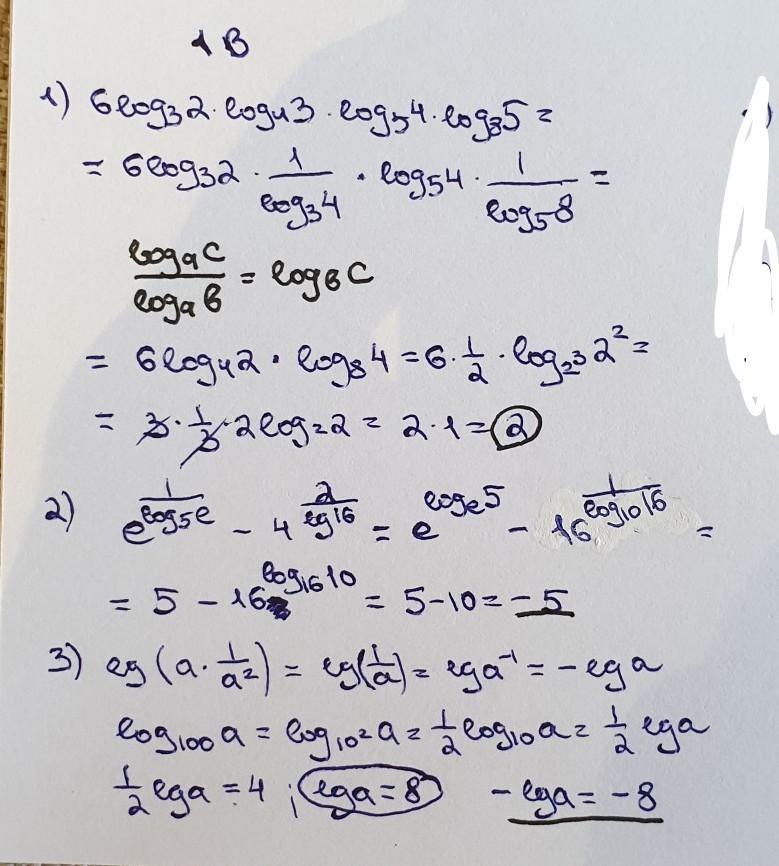 1 В
1) 6log₃2 · log₄3 · log₅4 · log₈5 =
= 6log₃2 · 1/log₃4 · log₅4 · 1/log₅8 =
logₐc/logₐb = log_b c
= 6log₄2 · log₈4 = 6 · 1/2 · log_{2³} 2² =
= 3 · 1/3 · 2log₂2 = 2 · 1 = 2
2) e^{1/log₅e} - 4^{2/lg16} = e^{logₑ5} - 16^{1/log₁₀16} =
= 5 - 16^{log₁₆10} = 5 - 10 = -5
3) lg(a · 1/a²) = lg(1/a) = lga⁻¹ = -lga
log₁₀₀a = log_{10²}a = 1/2 log₁₀a = 1/2 lga
1/2 lga = 4 ; lga = 8 -lga = -8